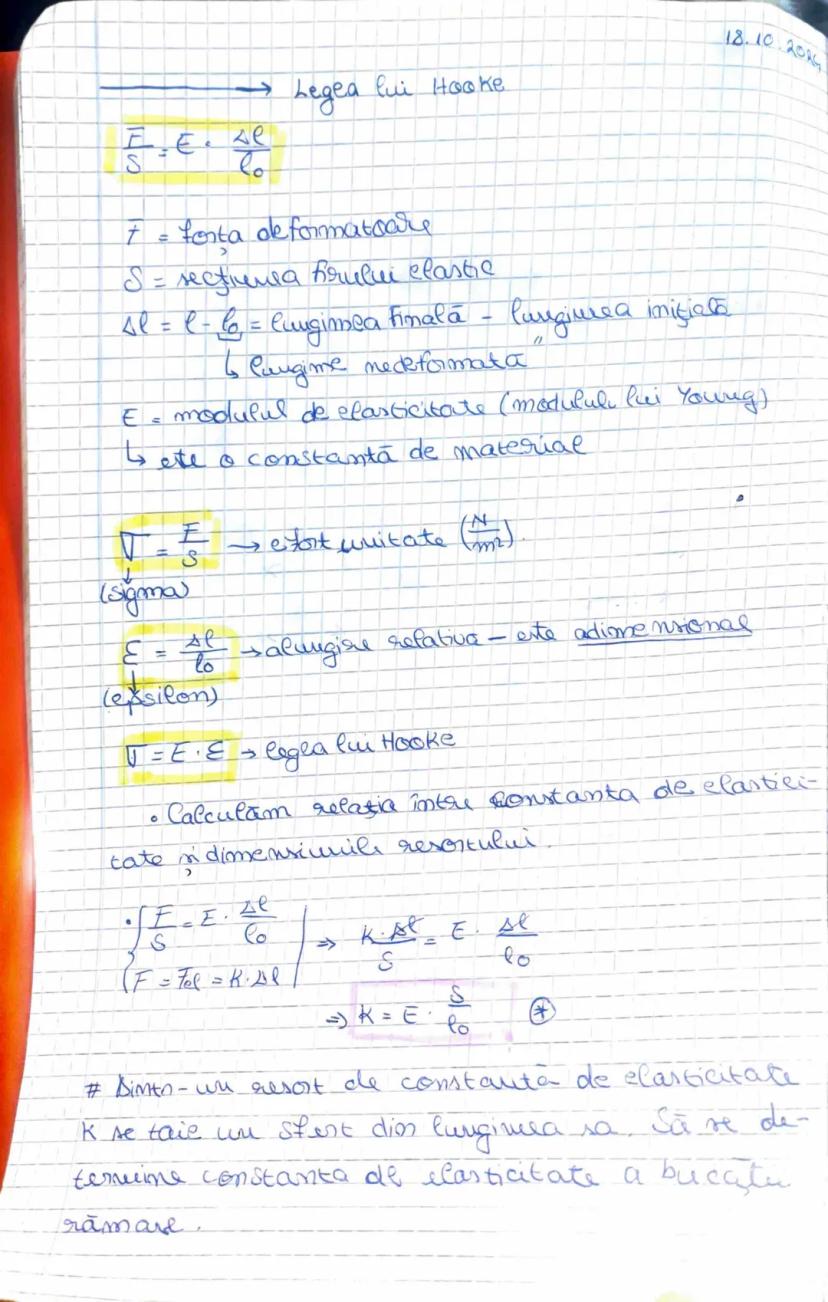 18.10.2024
→ Legea lui Hooke
F/S = E · Δl/l₀
F = forța deformatoare
S = secțiunea firului elastic
Δl = l - l₀ = lungimea finală - lungimea inițială
↳ lungime nedeformată
E = modulul de elasticitate (modulul lui Young)
↳ ete o constantă de material
σ = F/S → efort unitate (N/m²)
(sigma)
ε = Δl/l₀ → alungire relativa - este adimensional
(epsilon)
σ = E · ε → legea lui Hooke
• Calculăm relația între constanta de elastici-
tate și dimensiunile resortului.
• { F/S = E · Δl/l₀ | ⇒ K·Δl/S = E · Δl/l₀
{ F = Fel = K·Δl |
⇒ K = E · S/l₀ (*)
# Dintr-un resort de constantă de elasticitate
K se taie un sfert din lungimea sa. Să se de-
termine constanta de elasticitate a bucății
rămase.